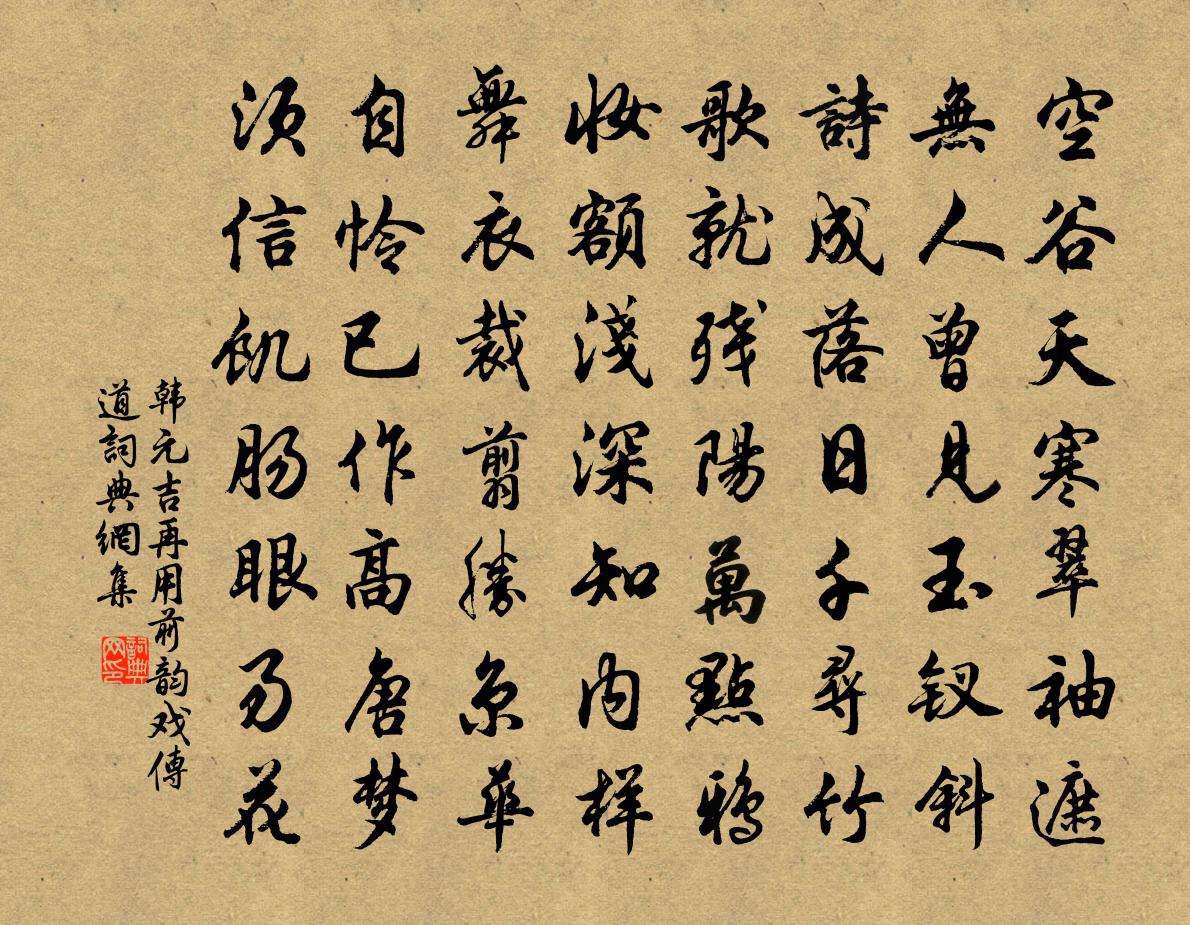 空谷天寒翠袖遮
無人曾見玉釵斜
詩成落日千尋竹
歌就残陽萬點鴉
妝額淺深知内樣
舞衣裁翦勝京華
自怜已作高唐梦
須信飢腸眼易花
韩元吉再用前韵戏傳
道詞典網集
詞典
网印